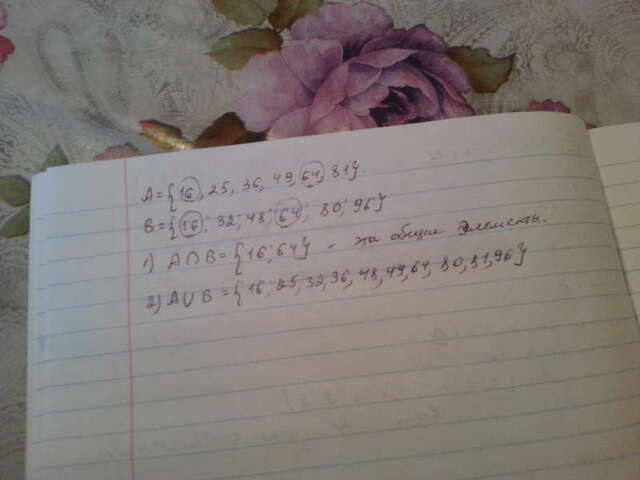 A = {16, 25, 36, 49, 64, 81}.
B = {16; 32; 48; 64; 80; 96}
1) A ∩ B = {16; 64} - это общие элементы.
2) A ∪ B = {16, 25, 32, 36, 48, 49, 64, 80, 81, 96}